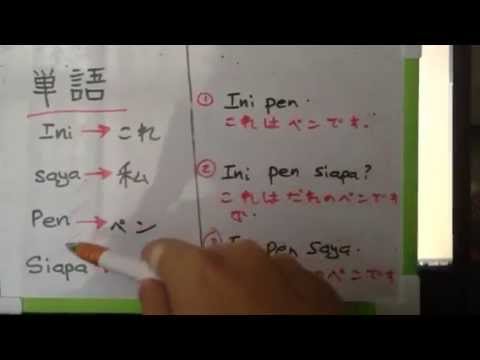 単語
Ini → これ
saya → 私
Pen → ペン
Siapa
① Ini pen.
これはペンです.
② Ini pen siapa?
これはだれのペンです
か.
pen saya.
のペンです